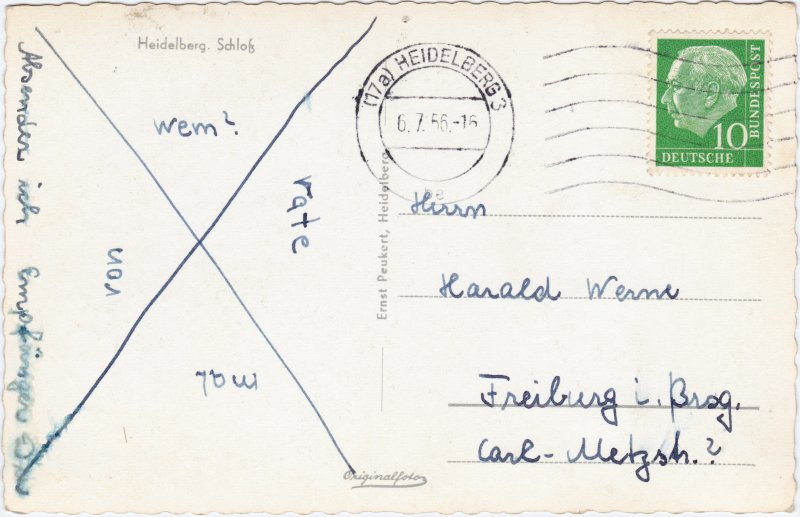 Heidelberg. Schloß
wem?
rate
von
mal
Absender ich Empfänger Du
Ernst Peukert, Heidelberg
Originalfoto
(17a) HEIDELBERG 3
6.7.56.-16
be
10
DEUTSCHE
BUNDESPOST
Herrn
Harald Werne
Freiburg i. Brsg.
Carl-Metzstr.?